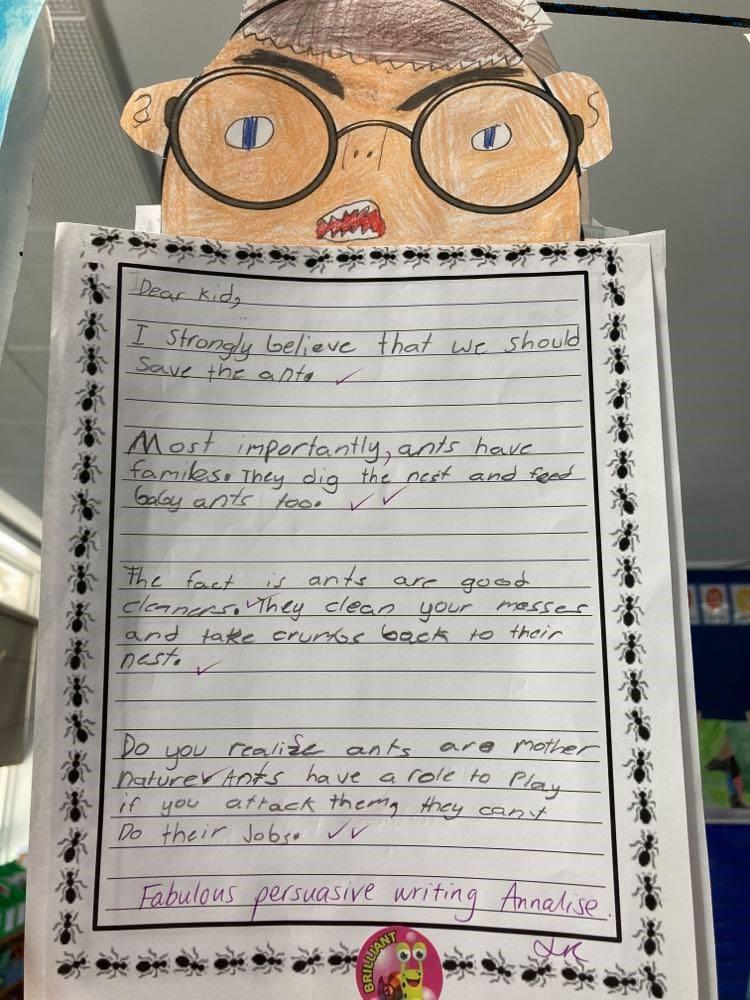 Dear kid,
I strongly believe that we should
save the ants.
Most importantly, ants have
familes. They dig the nest and feed
baby ants too.
The fact is ants are good
cleaners. They clean your messes
and take crumbs back to their
nest.
Do you realise ants are mother
nature Ants have a role to Play
if you attack them, they can't
Do their Jobs.
Fabulous persuasive writing Annalise.
BRILLIANT